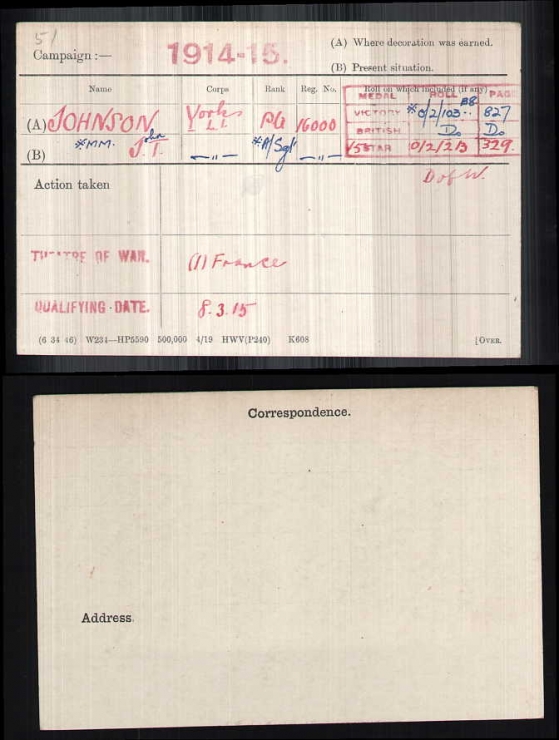 51
Campaign :— 1914-15. (A) Where decoration was earned.
(B) Present situation.
Name Corps Rank Reg. No. Roll on which included (if any)
MEDAL ROLL PAGE
(A) JOHNSON Yorks L.I. 16000 VICTORY *O/2/103.. B8 827
BRITISH Do. Do.
(B) *MM. J.T. John —"— *A/Sgt —"— 15 STAR O/2/2B 329.
Action taken D of W.
THEATRE OF WAR. (1) France
QUALIFYING DATE. 8.3.15
(6 34 46) W234—HP5590 500,000 4/19 HWV(P240) K608 [OVER.
Correspondence.
Address.